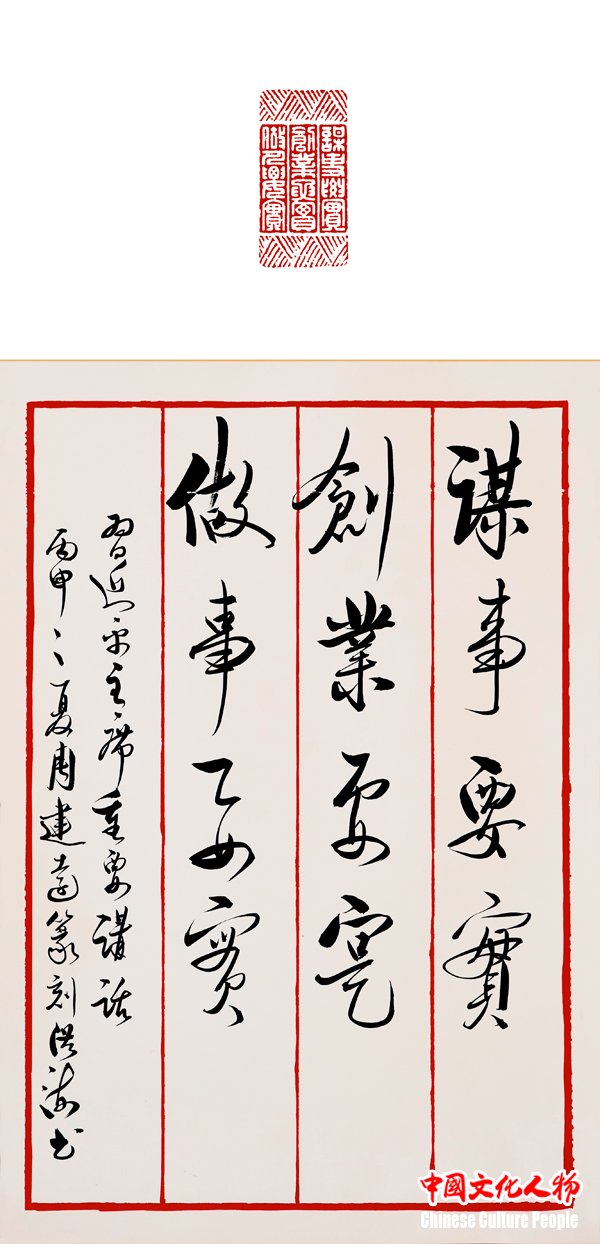 謀事要實
創業要實
做人要實
謀事要實
創業要實
做事要實
習近平主席重要講話
丙申之夏周建遠篆刻洪海书
中國文化人物
Chinese Culture People